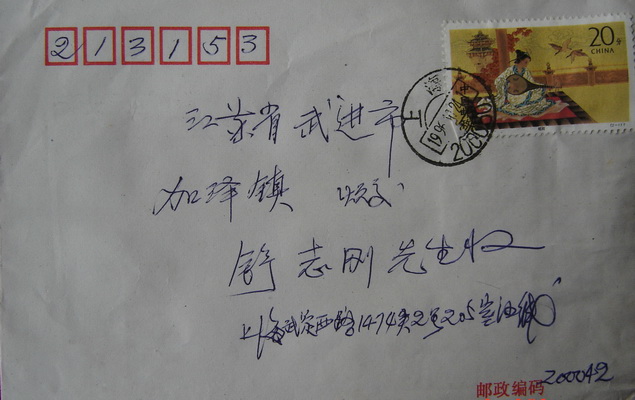 213153
20分
CHINA
上海
1994.11.20
200050
江苏省武进市
加泽镇
舒志刚先生收
上海武定西路1474弄2号205室
邮政编码 200042